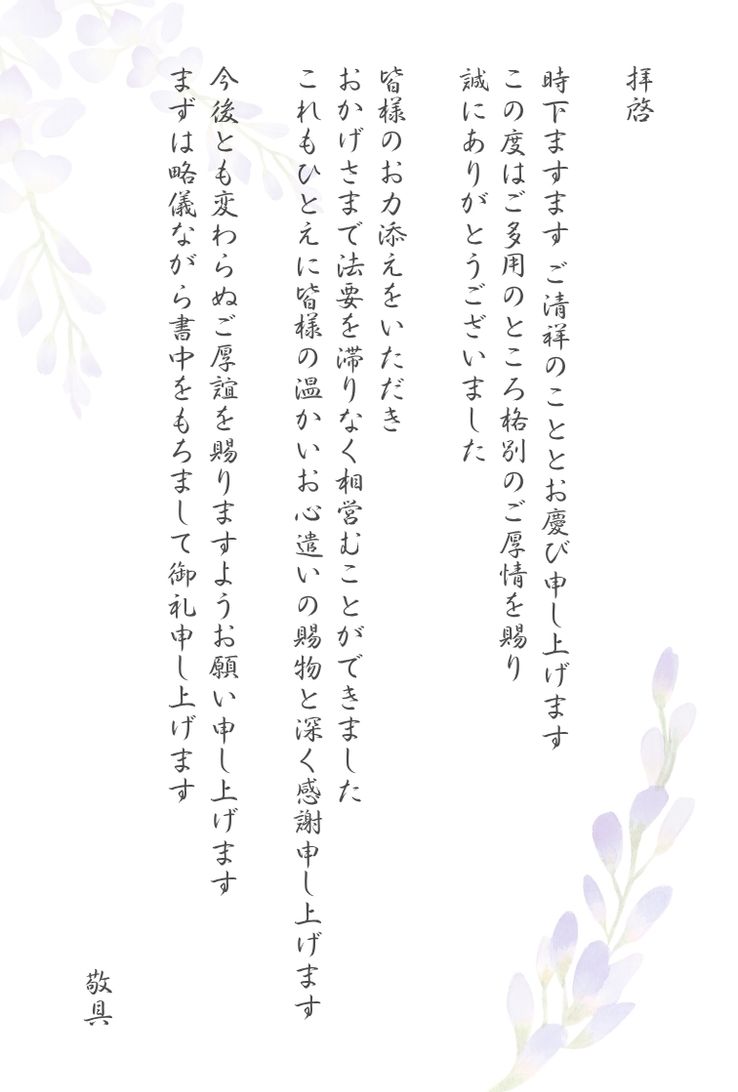 拝啓
時下ますます ご清祥のこととお慶び申し上げます
この度はご多用のところ格別のご厚情を賜り
誠にありがとうございました
皆様のお力添えをいただき
おかげさまで法要を滞りなく相営むことができました
これもひとえに皆様の温かいお心遣いの賜物と深く感謝申し上げます
今後とも変わらぬご厚誼を賜りますようお願い申し上げます
まずは略儀ながら書中をもちまして御礼申し上げます
敬具